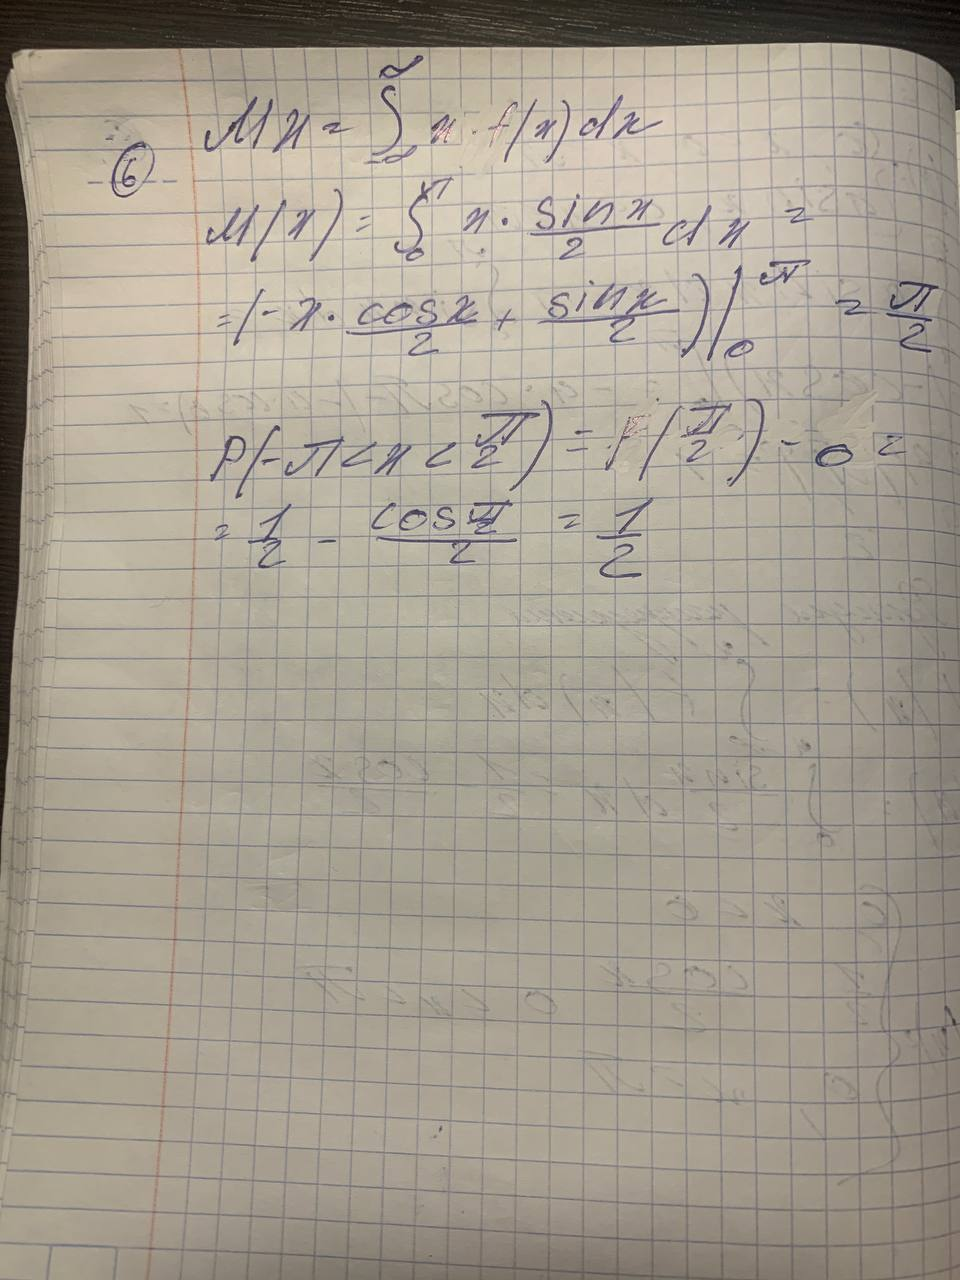 Mx = ∫_{-∞}^{∞} x · f(x) dx
⑥
M(x) = ∫_0^π x · sinx/2 dx =
= (-x · cosx/2 + sinx/2) |_0^π = π/2
P(-π < x < π/2) = F(π/2) - 0 =
= 1/2 - cos π/2 / 2 = 1/2